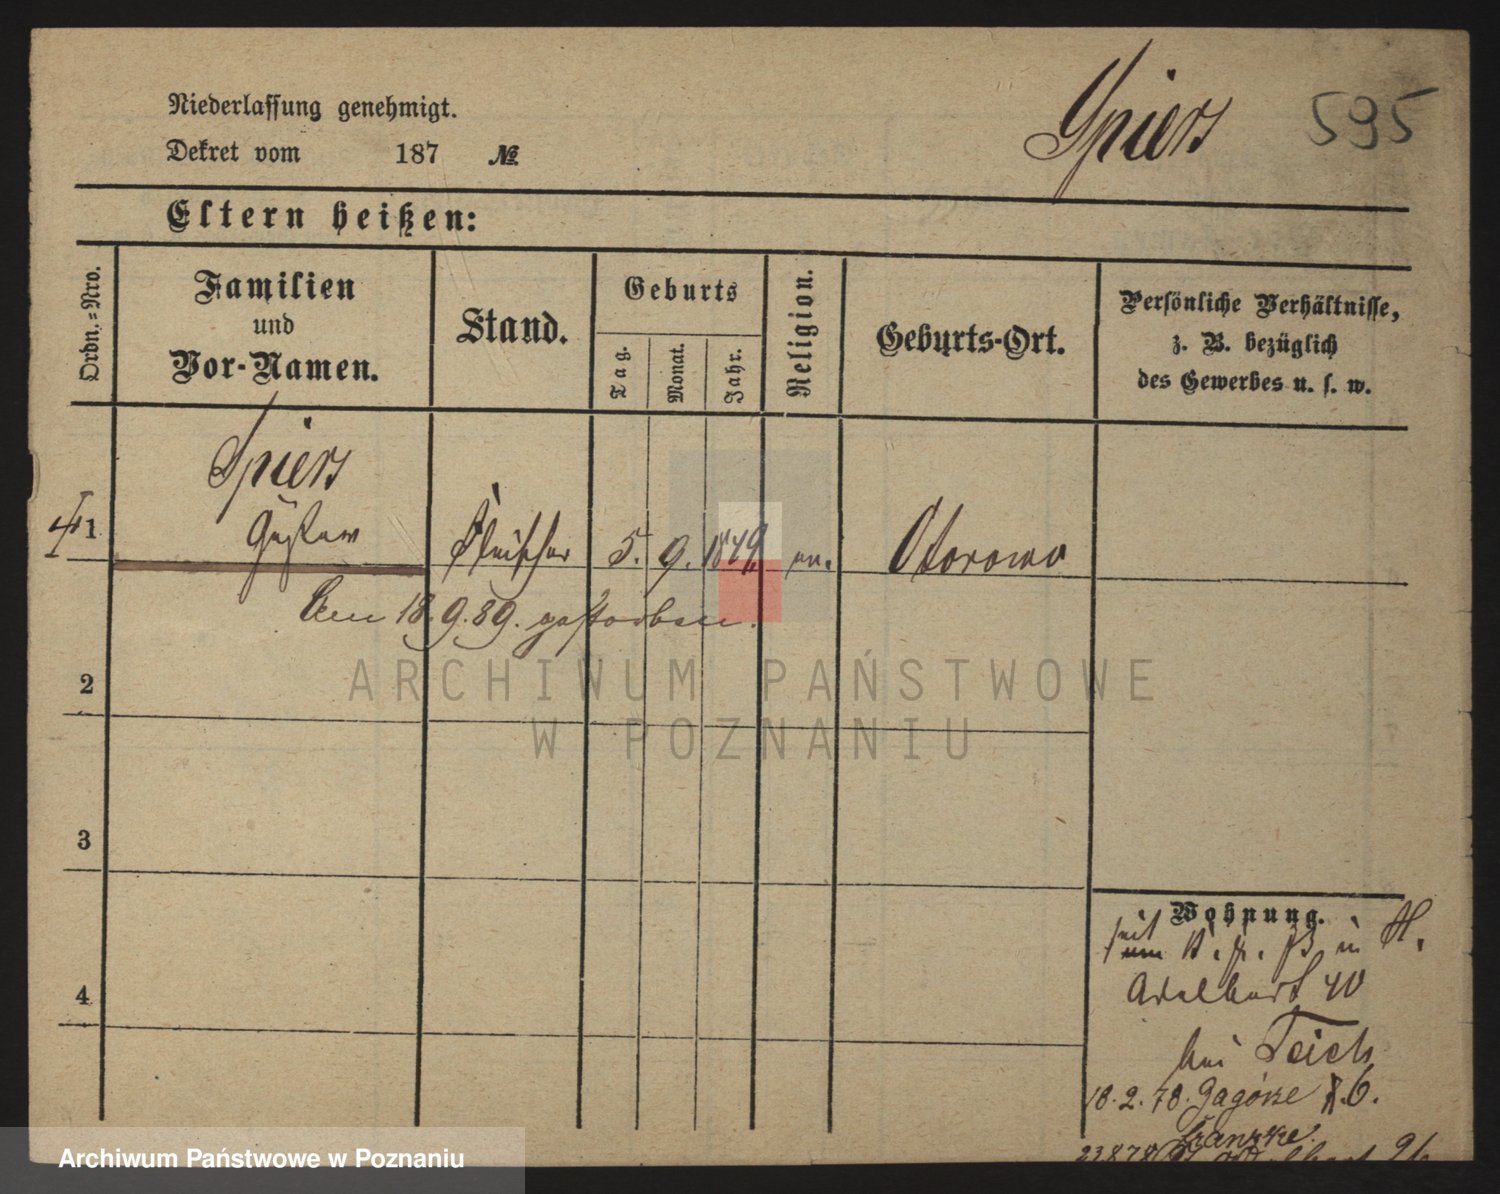 Niederlassung genehmigt.
Spiers 595
Dekret vom 187 №
Eltern heißen:
Ordn.=Nro.
Familien
und
Vor-Namen.
Stand.
Geburts
Tag.
Monat.
Jahr.
Religion.
Geburts-Ort.
Persönliche Verhältnisse,
z. B. bezüglich
des Gewerbes u. s. w.
Spiers
1 Gustav Fleischer 5. 9. 1849 ev. Otorowo
Am 18.9.89. gestorben.
2
3
4
Wohnung.
seit
Adalbert 40
bei Teich
18.2.78. 6.
Franzke.
ARCHIWUM PAŃSTWOWE
W POZNANIU
Archiwum Państwowe w Poznaniu